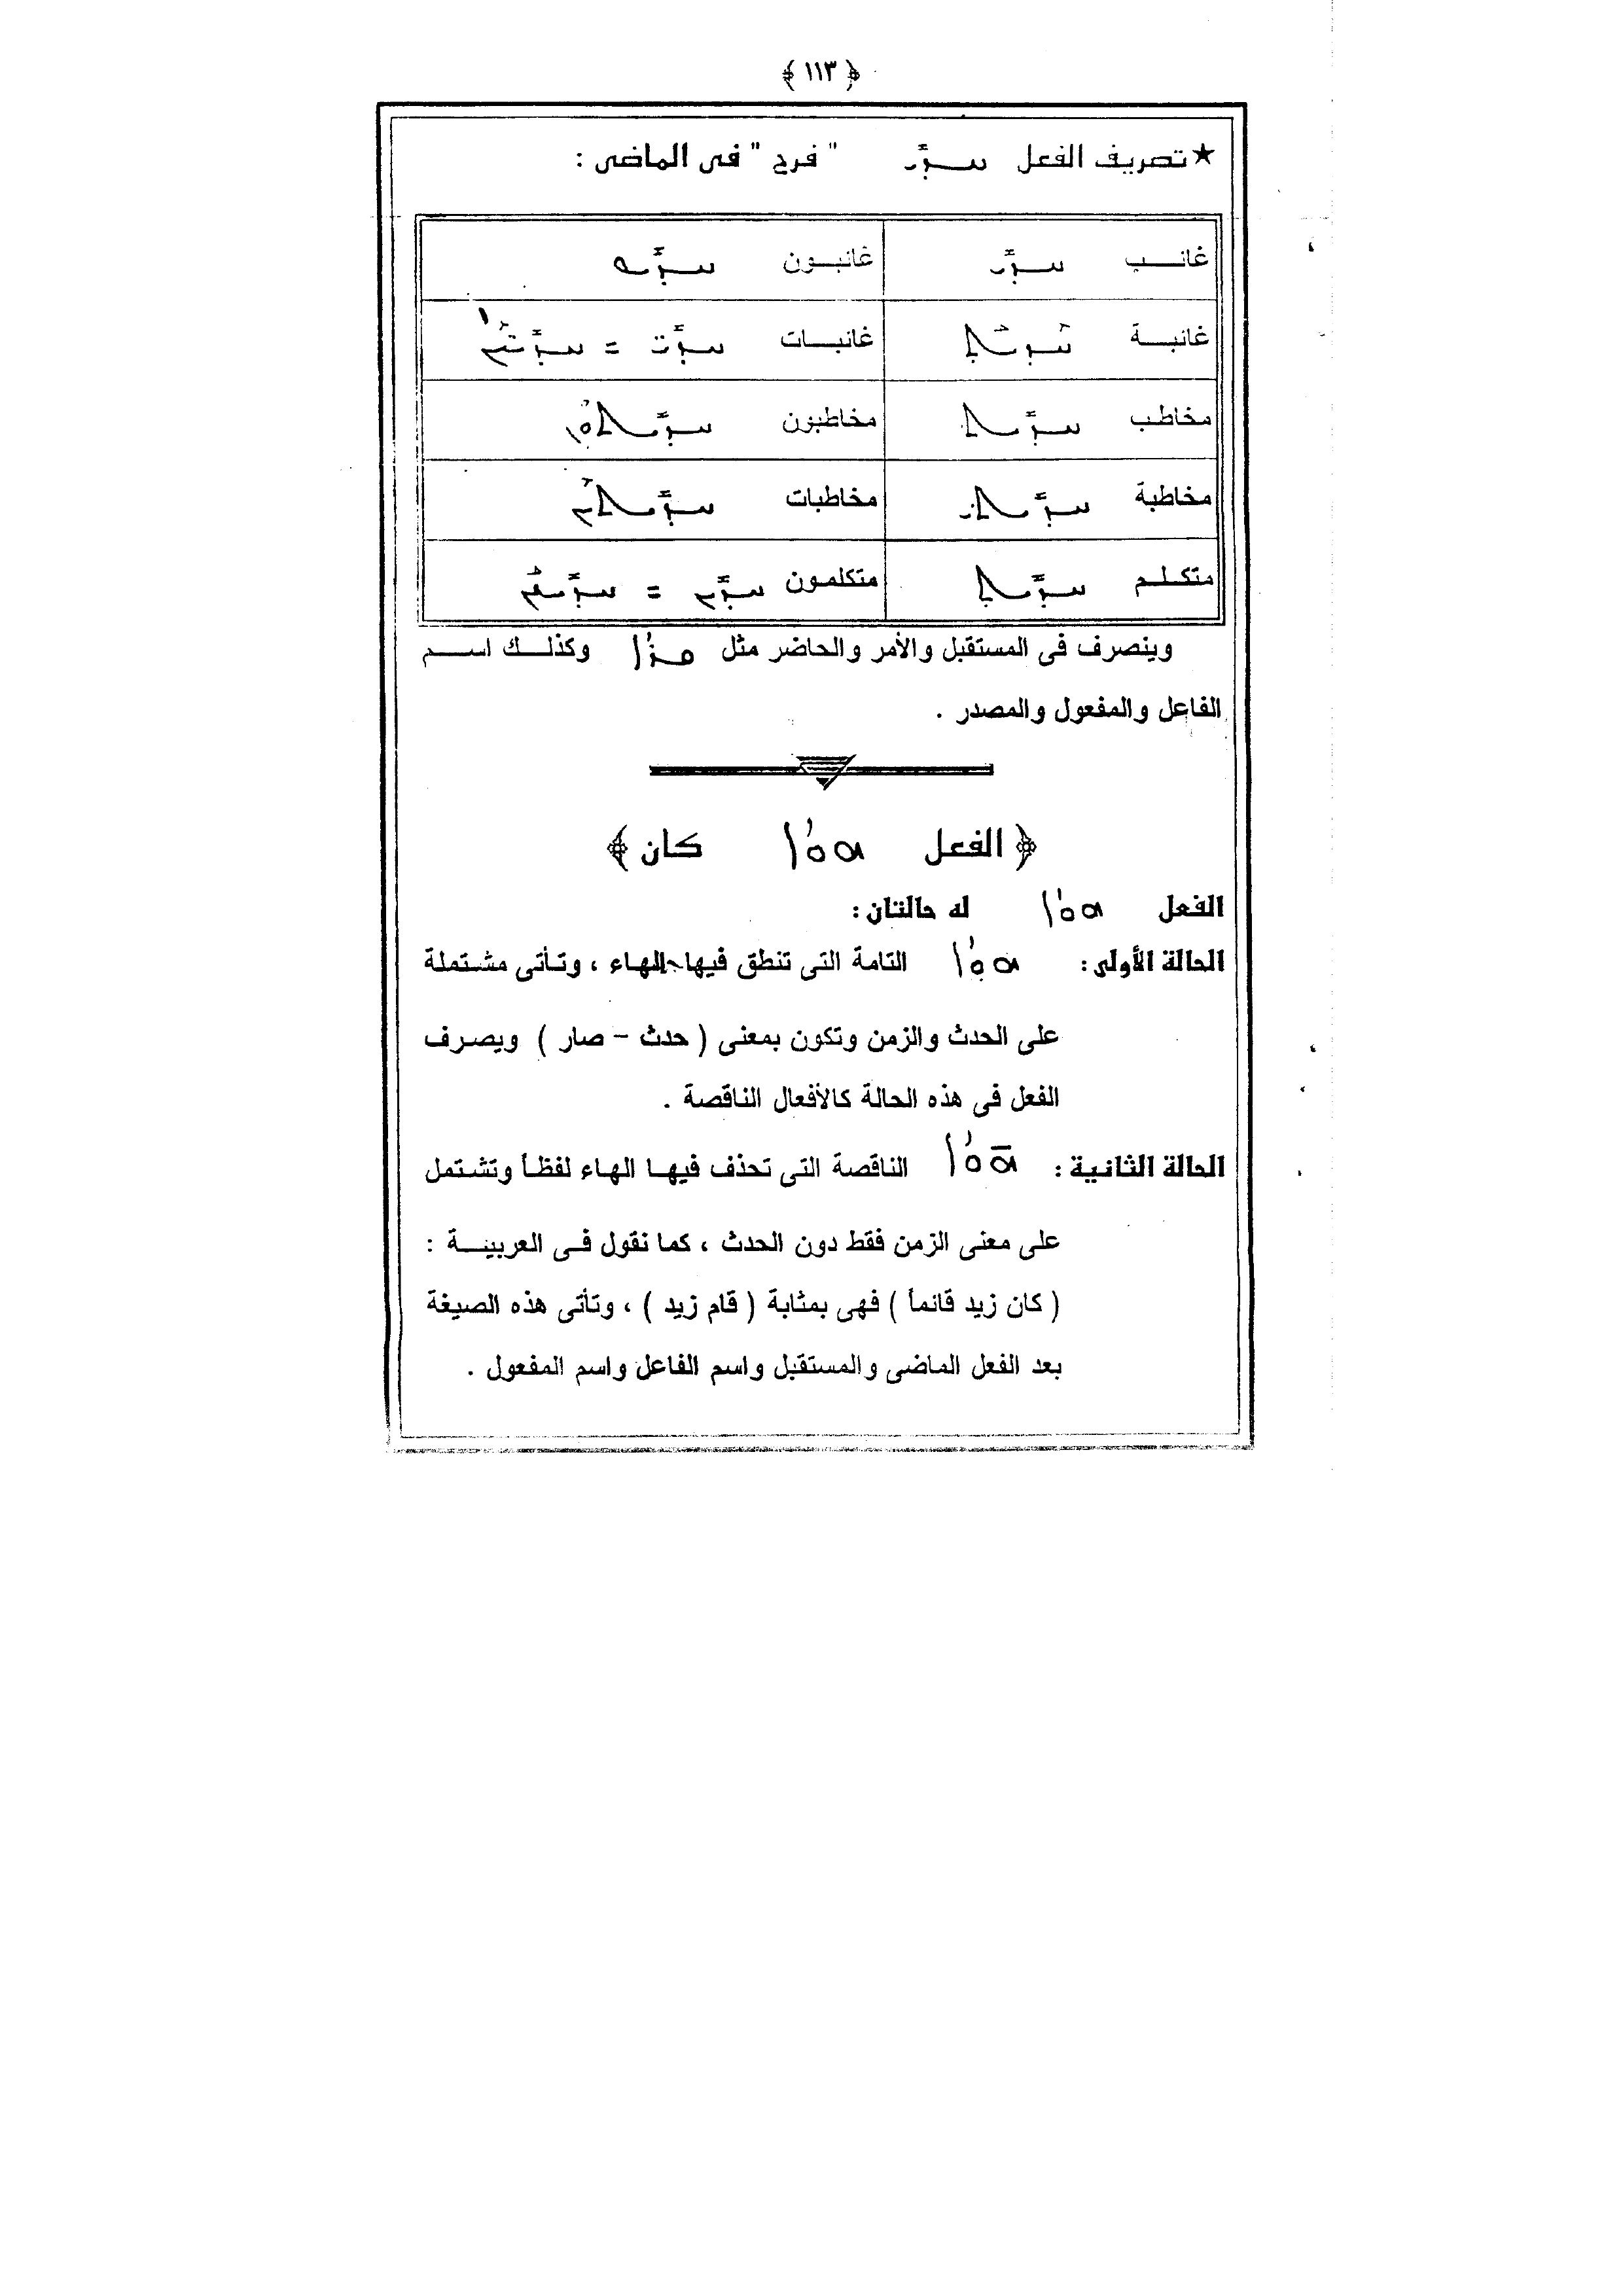 ﴿ ١١٣ ﴾
★ تصريف الفعل ܚܕܝ " فرح " فى الماضى :
غائب ܚܕܝ غائبون ܚܕܝܘ
غائبة ܚܕܝܬ غائبات ܚܕܝ = ܚܕܝܝܢ
مخاطب ܚܕܝܬ مخاطبون ܚܕܝܬܘܢ
مخاطبة ܚܕܝܬܝ مخاطبات ܚܕܝܬܝܢ
متكلم ܚܕܝܬ متكلمون ܚܕܝܢ = ܚܕܝܢܢ
وينصرف فى المستقبل والأمر والحاضر مثل ܩܪܐ وكذلك اسم
الفاعل والمفعول والمصدر .
﴿ الفعل ܗܘܐ كان ﴾
الفعل ܗܘܐ له حالتان :
الحالة الأولى : ܗܘܐ التامة التى تنطق فيها الهاء ، وتأتى مشتملة
على الحدث والزمن وتكون بمعنى ( حدث – صار ) ويصرف
الفعل فى هذه الحالة كالأفعال الناقصة .
الحالة الثانية : ܗܘܐ الناقصة التى تحذف فيها الهاء لفظاً وتشتمل
على معنى الزمن فقط دون الحدث ، كما نقول فى العربية :
( كان زيد قائماً ) فهى بمثابة ( قام زيد ) ، وتأتى هذه الصيغة
بعد الفعل الماضى والمستقبل واسم الفاعل واسم المفعول .